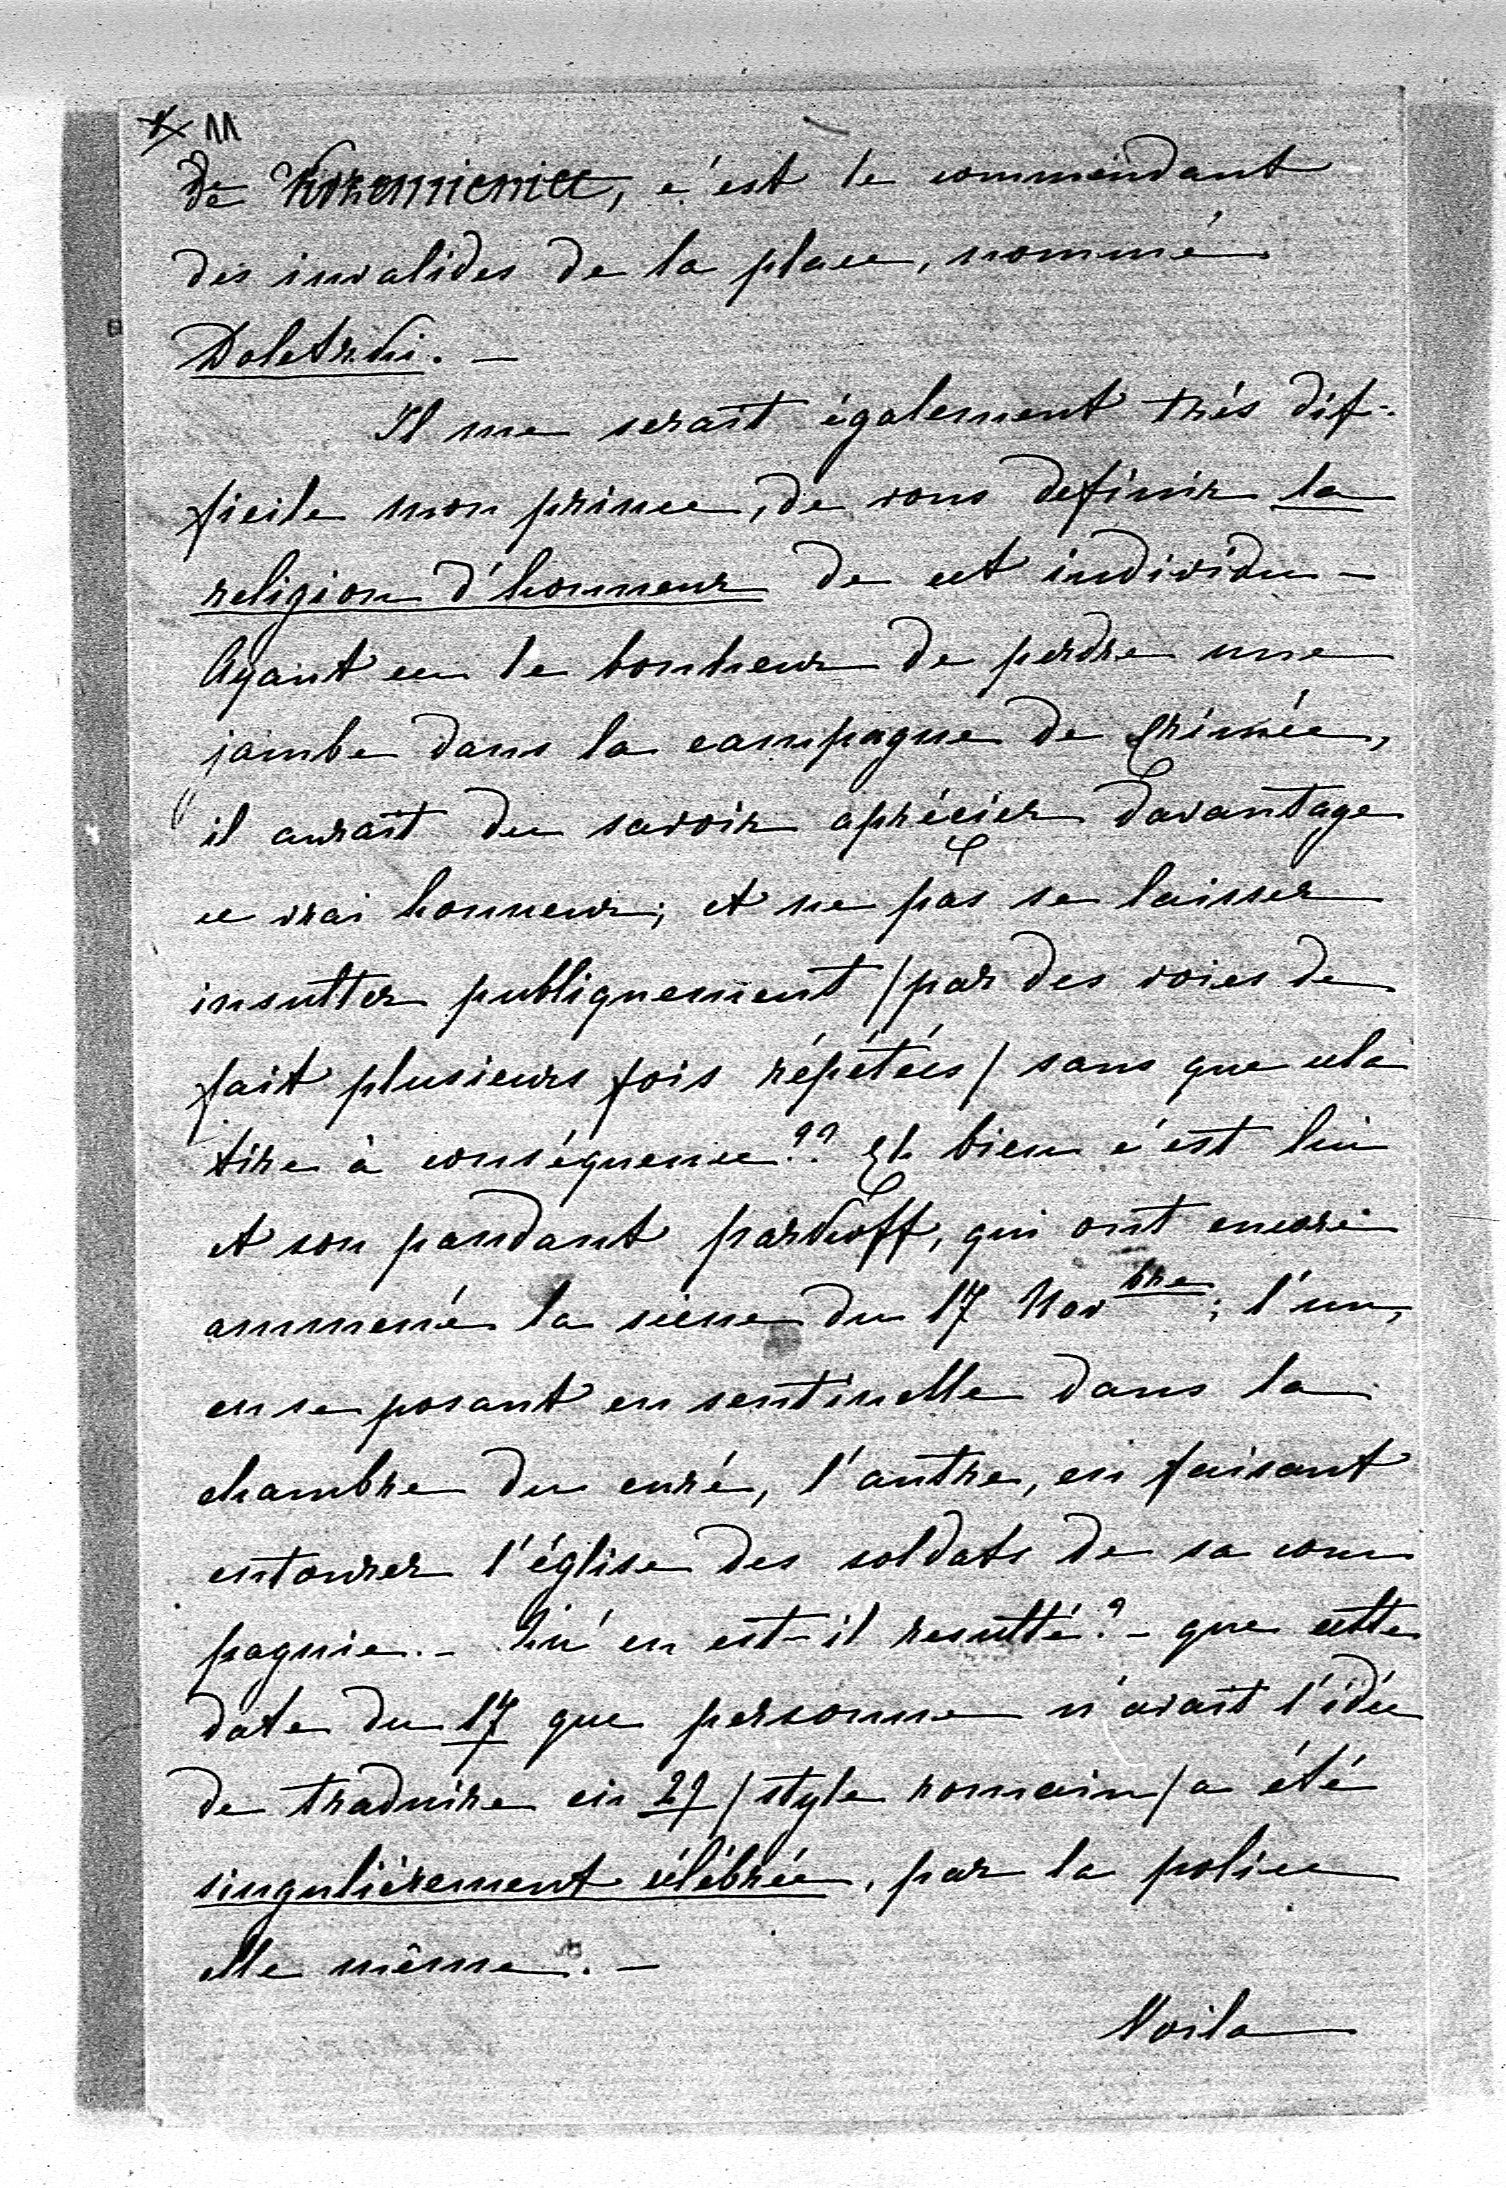 11
de Krzemieniec, c'est le commendant
des invalides de la place, nommé
Doletzki. –
Il me serait également trés dif-
ficile mon prince, de vous definir la
religion d'honneur de cet individu –
Ayant eu le bonheur de perdre une
jambe dans la campagne de Crimée,
il aurait du savoir aprécier davantage
ce vrai honneur; et ne pas se laisser
insulter publiquement / par des voies de
fait plusieurs fois répétées / sans que cela
tire à conséquence?? Eh bien c'est lui
et son pandant parkoff, qui ont encore
ammené la scene du 17 Novbre; l'un,
en se posant en sentinelle dans la
chambre du curé, l'autre, en faisant
entourer l'église des soldats de sa com
pagnie. – Qu'en est-il resulté? – que cette
date du 17 que personne n'avait l'idée
de traduire en 29 / style romain / a été
singuliérement célébrée, par la police
elle même. –
Voila